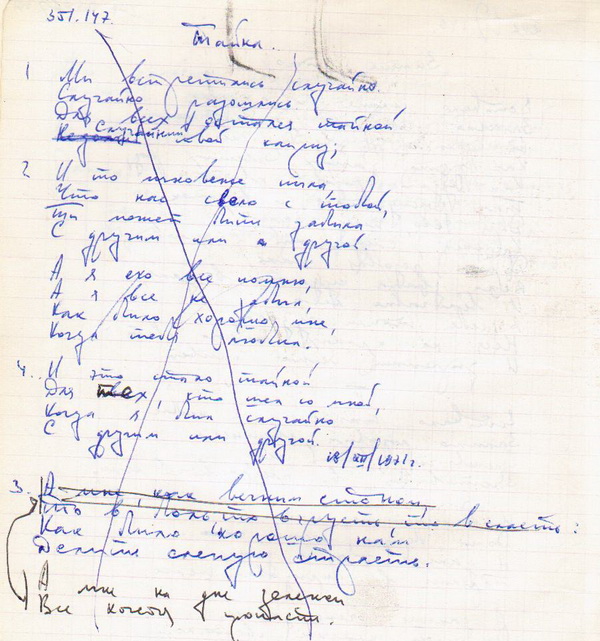 551.147
Тайна.
1 Мы встретились случайно.
Случайно разошлись.
Для всех остался тайной
Случайный твой каприз;
2. И то мгновенье тихо,
Что нас свело с тобой,
Ты может быть забыла
С другим или с другой.
А я его все помню,
А я все не забыл,
Как было хорошо мне,
Когда тебя любил.
4. И это стало тайной
Для тех, кто шел со мной,
Когда я был случайно
С другим или другой.
18/XII/1971г.
3. А мне как вечным стоном
То в болть грусть, то в сласть:
Как было хорошо нам
Делить слепую страсть.
А мне на дне зеленом
Все хочется пропасть.